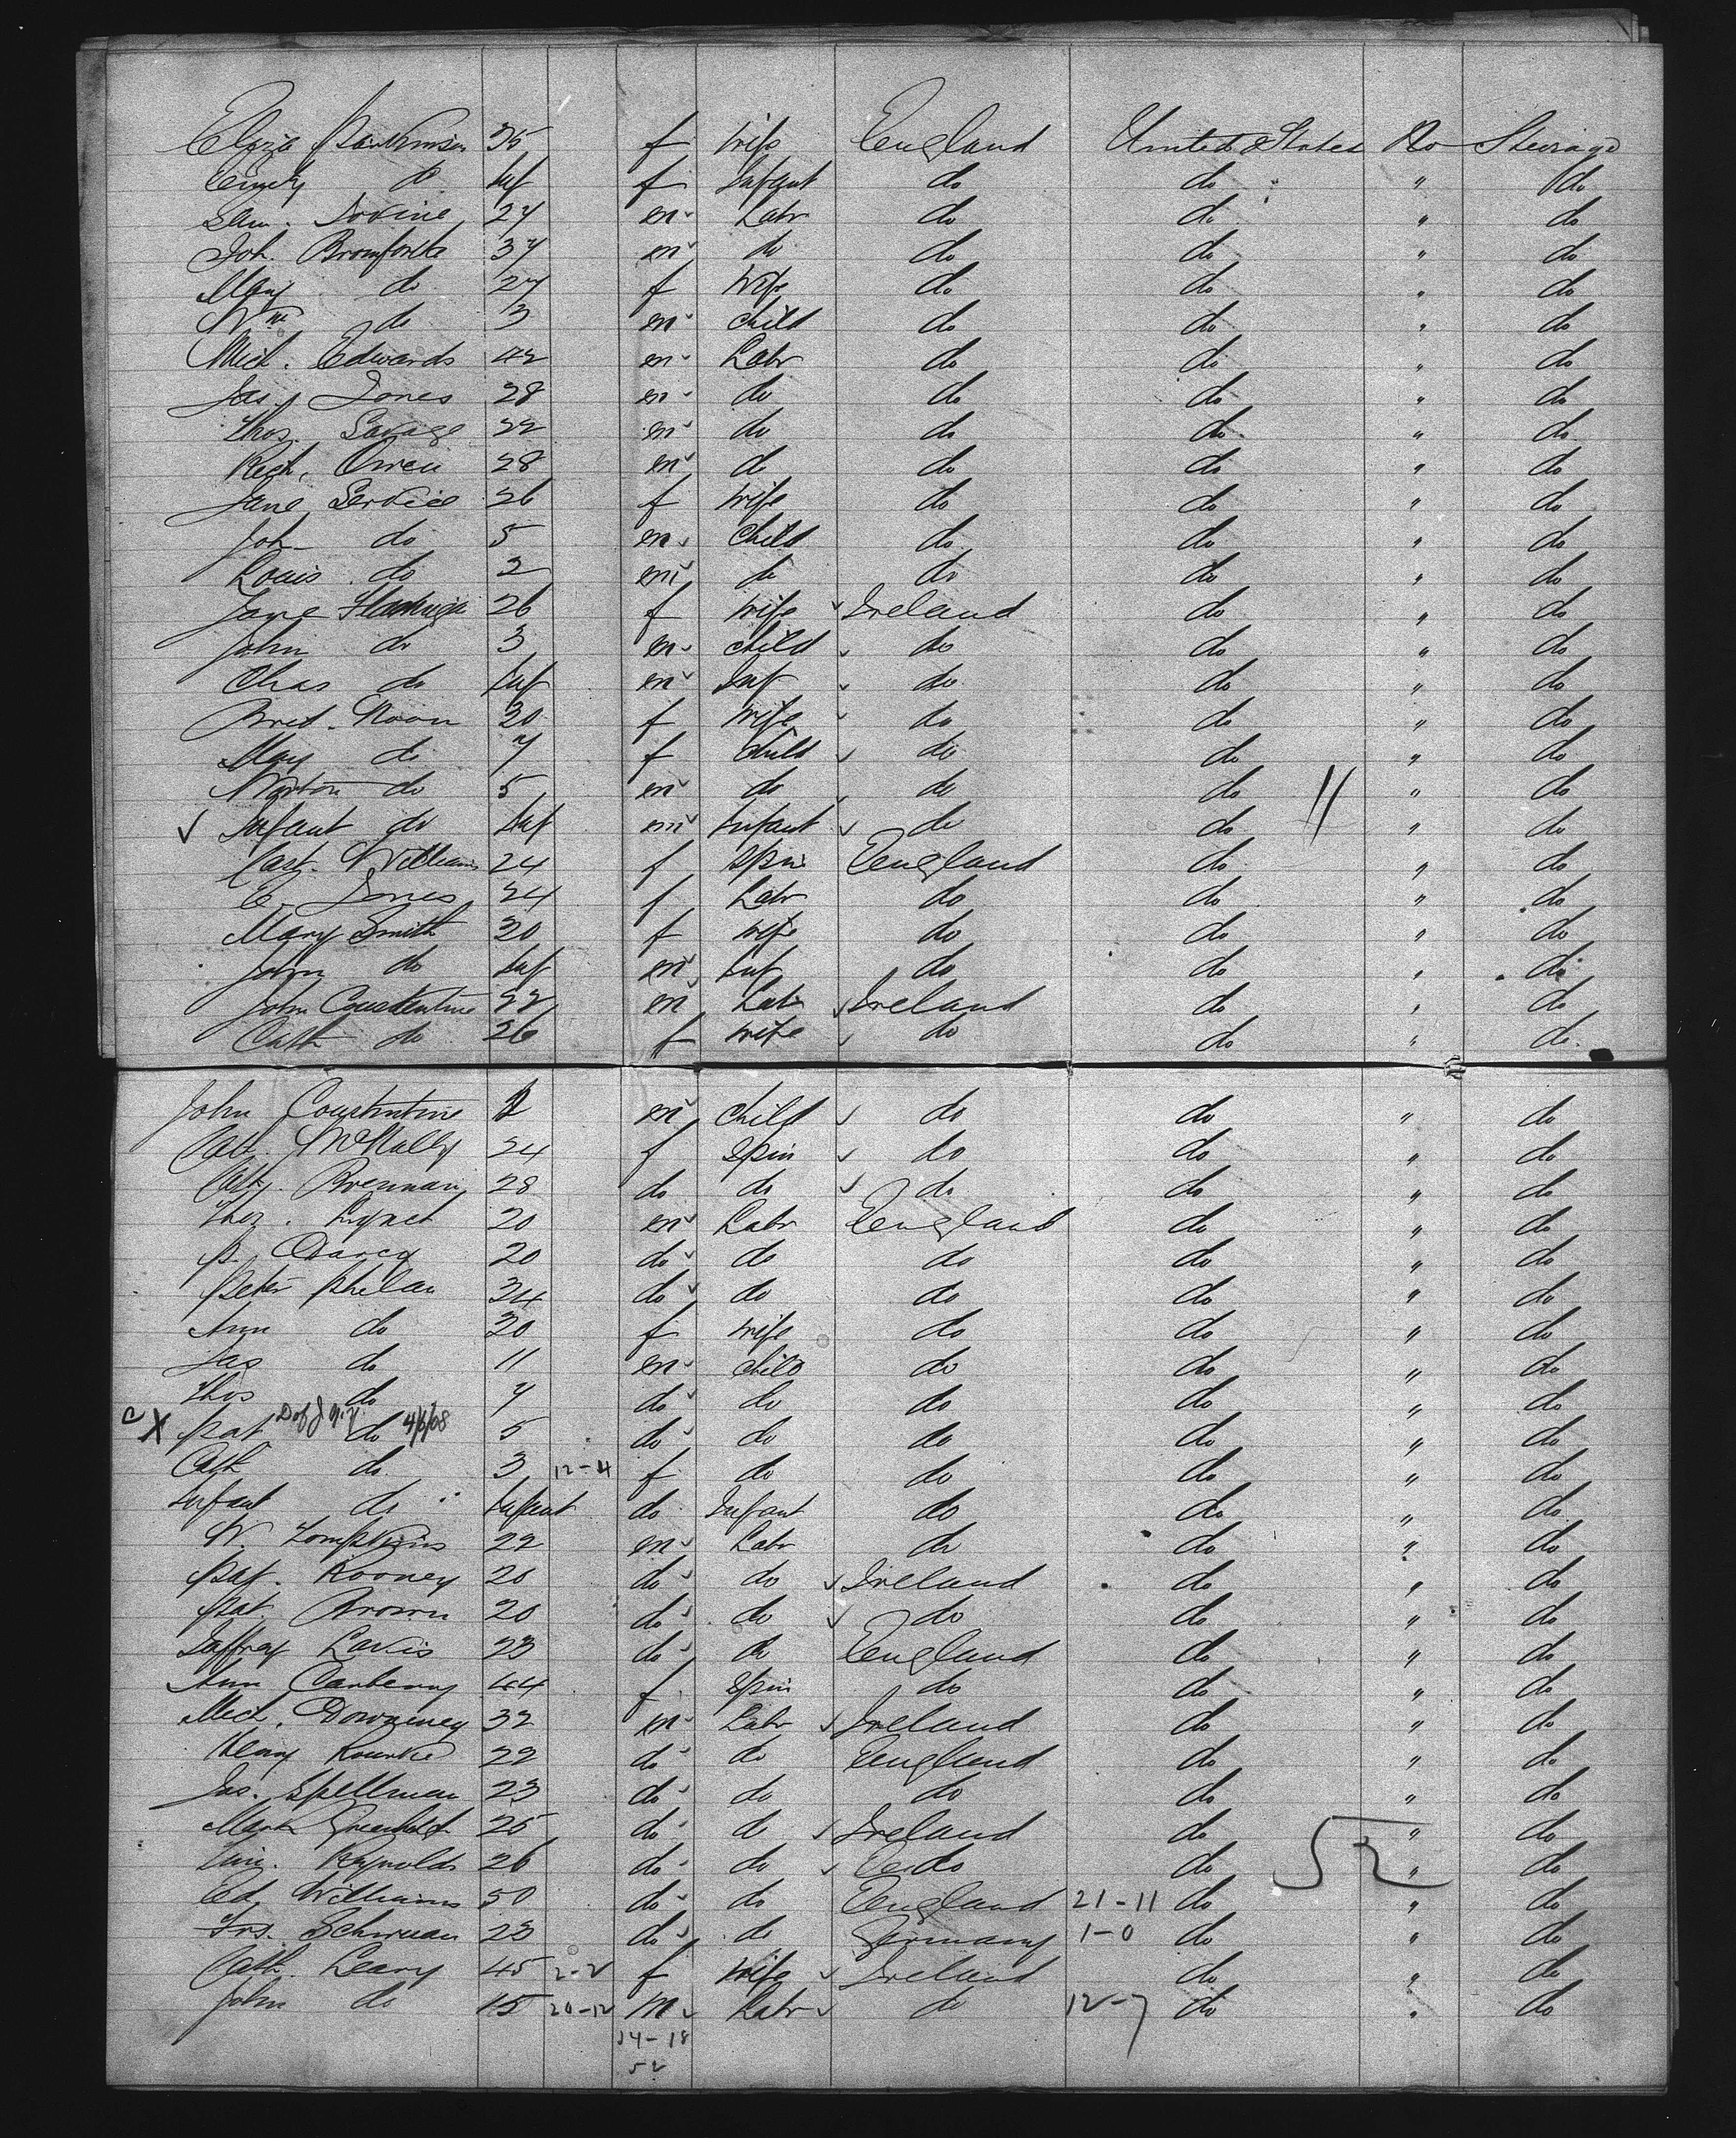 Eliza Parkinson 35 f wife England United States No Steerage
Emily do Inf f Infant do do " do
Sam. Irvine 24 m Labr do do " do
Joh. 34 m do do do " do
Mary do 24 f wife do do " do
Wm do 3 m child do do " do
Mich. Edwards 42 m Labr do do " do
Jas. Jones 28 m do do do " do
Thos. Savage 22 m do do do " do
Richd. Owen 28 m do do do " do
Jane Service 26 f wife do do " do
Joh do 5 m child do do " do
Louis do 2 m do do do " do
Jane 26 f wife Ireland do " do
John do 3 m child do do " do
Chas do Inf m Inf do do " do
Brid. Noon 30 f wife do do " do
Mary do 7 f child do do " do
Martin do 5 m do do do " do
✓ Infant do Inf m Infant do do 11 " do
Cath. Williams 24 f spin England do " do
E. Jones 24 f Labr do do " do
Mary Smith 20 f wife do do " do
John do Inf m Inf do do " do
John Constentine 22 m Labr Ireland do " do
Cath do 26 f wife do do " do
John Constentine m child do do " do
Cath. McNally 24 f spin do do " do
Cath. Brennan 28 do do do do " do
Thos. 20 m Labr England do " do
P. Darcy 20 do do do do " do
Peter Phelan 34 do do do do " do
Ann do 30 f wife do do " do
Jas do 11 m child do do " do
Thos do 7 do do do do " do
c X Pat do 4/6/08 5 do do do do " do
Cath do 3 12-4 f do do do " do
Infant do Infant do Infant do do " do
W. Tompkins 22 m Labr do do " do
Pat. Rooney 20 do do Ireland do " do
Pat. Brown 20 do do do do " do
Jaffrey Lavis 23 do do England do " do
Ann Canberry 44 f spin do do " do
Mich. Downiney 32 m Labr Ireland do " do
Henry Rourke 22 do do England do " do
Jas. Spellman 23 do do do do " do
Mark 25 do do Ireland do " do
Reynolds 26 do do do do 52 " do
Ed. Williams 50 do do England 21-11 do " do
Frs. Schwean 23 do do Germany 1-0 do " do
Cath. Leary 45 2-2 f wife Ireland do " do
John do 15 20-12 m Labr do 12-7 do " do
34-18
52